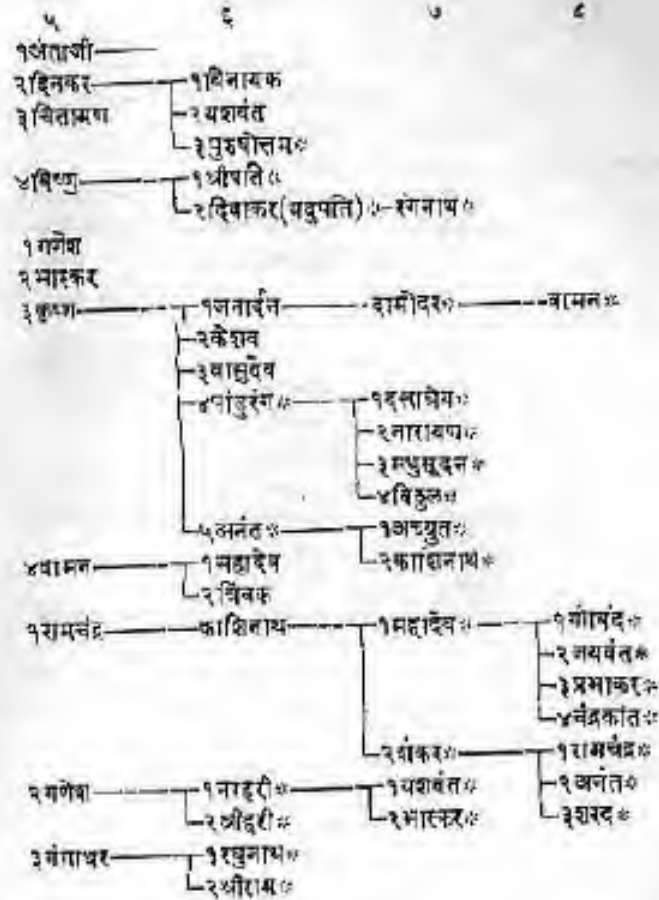 ५ ६ ७ ८
१अंताजी
२दिनकर १विनायक
३चिंतामण २यशवंत
३पुरुषोत्तम※
४विष्णु १श्रीपति※
२दिवाकर(यदुपति)※ रंगनाथ※
१गणेश
२भास्कर
३कृष्ण १जनार्दन दामोदर※ वामन※
२केशव
३वासुदेव
४पांडुरंग※ १दत्तात्रेय※
२नारायण※
३मधुसूदन※
४विठ्ठल※
५अनंत※ १अच्युत※
४वामन १महादेव २काशिनाथ※
२त्रिंबक
१रामचंद्र काशिनाथ १महादेव※ १गोविंद※
२जयवंत※
३प्रभाकर※
४चंद्रकांत※
२शंकर※ १रामचंद्र※
२गणेश १नरहरी※ १यशवंत※ २अनंत※
२श्रीहरी※ २भास्कर※ ३शरद※
३गंगाधर १रघुनाथ※
२श्रीराम※